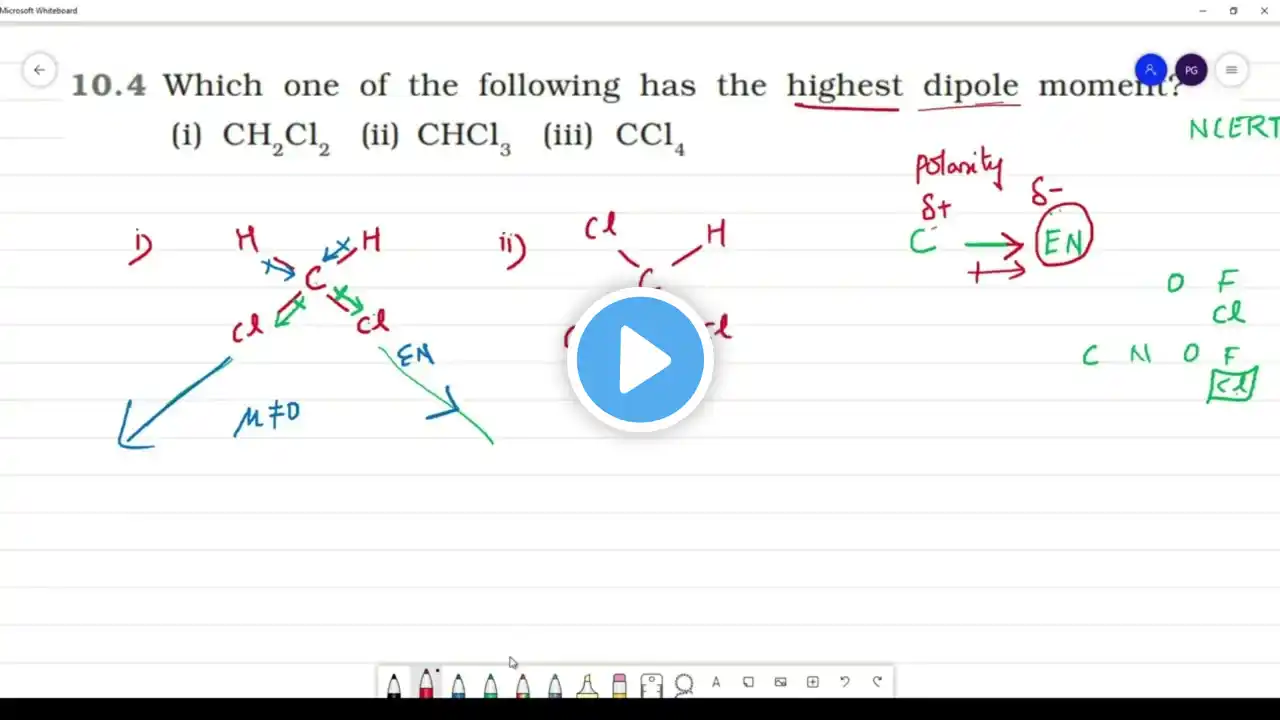 Microsoft Whiteboard
PG
10.4 Which one of the following has the highest dipole moment?
(i) CH₂Cl₂ (ii) CHCl₃ (iii) CCl₄
NCERT
polarity
δ+ δ-
C EN
i) H H
C
Cl Cl
EN
μ≠0
ii) Cl H
C
Cl
O F
Cl
C N O F
Cl
A